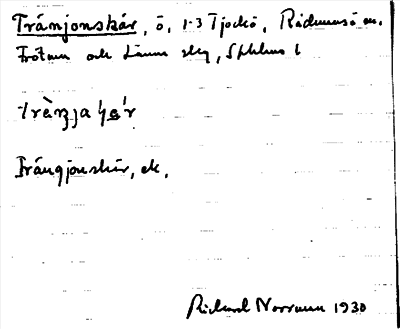 Trånjonskär, ö, 1-3 Tjockö, Rådmansö sn.
Frötuna och Länna skg, Sthlms l
Trångjonskär, ek.
Rickard Norrman 1930